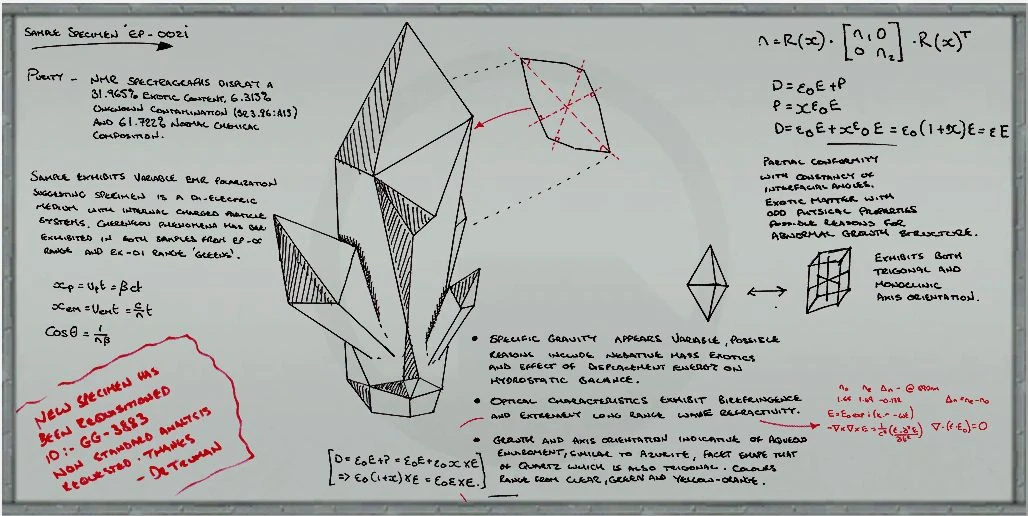 SAMPLE SPECIMEN 'EP-0021
PURITY - NMR SPECTRAGRAPHS DISPLAY A
31.965% EXOTIC CONTENT, 6.313%
UNKNOWN CONTAMINATION (SEZ3.86:A13)
AND 61.722% NORMAL CHEMICAL
COMPOSITION.
SAMPLE EXHIBITS VARIABLE EMR POLARIZATION
SUGGESTING SPECIMEN IS A DI-ELECTRIC
MEDIUM WITH INTERNAL CHARGED PARTICLE
SYSTEMS. CHERENKOV PHENOMENA HAS
EXHIBITED IN BOTH SAMPLES FROM EP-0
RANGE AND EX-01 RANGE 'GREENS'.
xp = Upt = βct
xem = Uemt = c/n t
Cosθ = 1/nβ
NEW SPECIMEN HAS
BEEN REQUISITIONED
ID:- GG-3883
NON STANDARD ANALYSIS
REQUESTED. THANKS
- DR TRUMAN
n = R(x) · [n1 0
0 n2] · R(x)ᵀ
D = ε0E + P
P = xε0E
D = ε0E + xε0E = ε0(1+x)E = εE
PARTIAL CONFORMITY
WITH CONSTANCY OF
INTERFACIAL ANGLES.
EXOTIC MATTER WITH
ODD PHYSICAL PROPERTIES
POSSIBLE REASONS FOR
ABNORMAL GROWTH STRUCTURE.
EXHIBITS BOTH
TRIGONAL AND
MONOCLINIC
AXIS ORIENTATION.
• SPECIFIC GRAVITY APPEARS VARIABLE, POSSIBLE
REASONS INCLUDE NEGATIVE MASS EXOTICS
AND EFFECT OF DISPLACEMENT ENERGY ON
HYDROSTATIC BALANCE.
• OPTICAL CHARACTERISTICS EXHIBIT BIREFRINGENCE
AND EXTREMENT LONG RANGE WAVE REFRACTIVITY.
• GROWTH AND AXIS ORIENTATION INDICATIVE OF AQUEOUS
ENVIROMENT, SIMILAR TO AZURITE, FACET SHAPE THAT
OF QUARTZ WHICH IS ALSO TRIGONAL. COLOURS
RANGE FROM CLEAR, GREEN AND YELLOW-ORANGE.
no ne Δn - @
Δn = ne-no
E = E0 exp i(k·r-ωt)
-∇×∇×E = 1/c² (ε·∂²E/∂t²) ∇·(ε·E0)=0
[D = ε0E + P = ε0E + ε0x×E
=> ε0(1+x)×E = ε0ε×E]